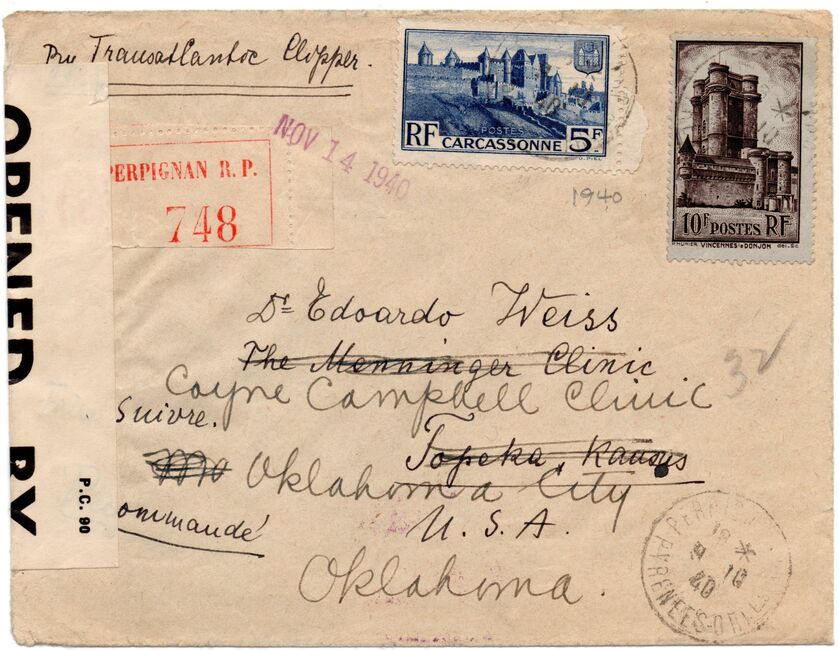 Par Transatlantoc Clipper.
OPENED BY
P.C. 90
PERPIGNAN R. P.
748
NOV 14 1940
POSTES
RF CARCASSONNE 5F
1940
10F POSTES RF
VINCENNES-le DONJON
Dr Edoardo Weiss
The Menninger Clinic
Coyne Campbell Clinic
32
Suivre.
Topeka, Kansas
Oklahoma City
ommandé
U. S. A.
Oklahoma.
PERPI
18 *
10
40
PYRENEES-ORIENT